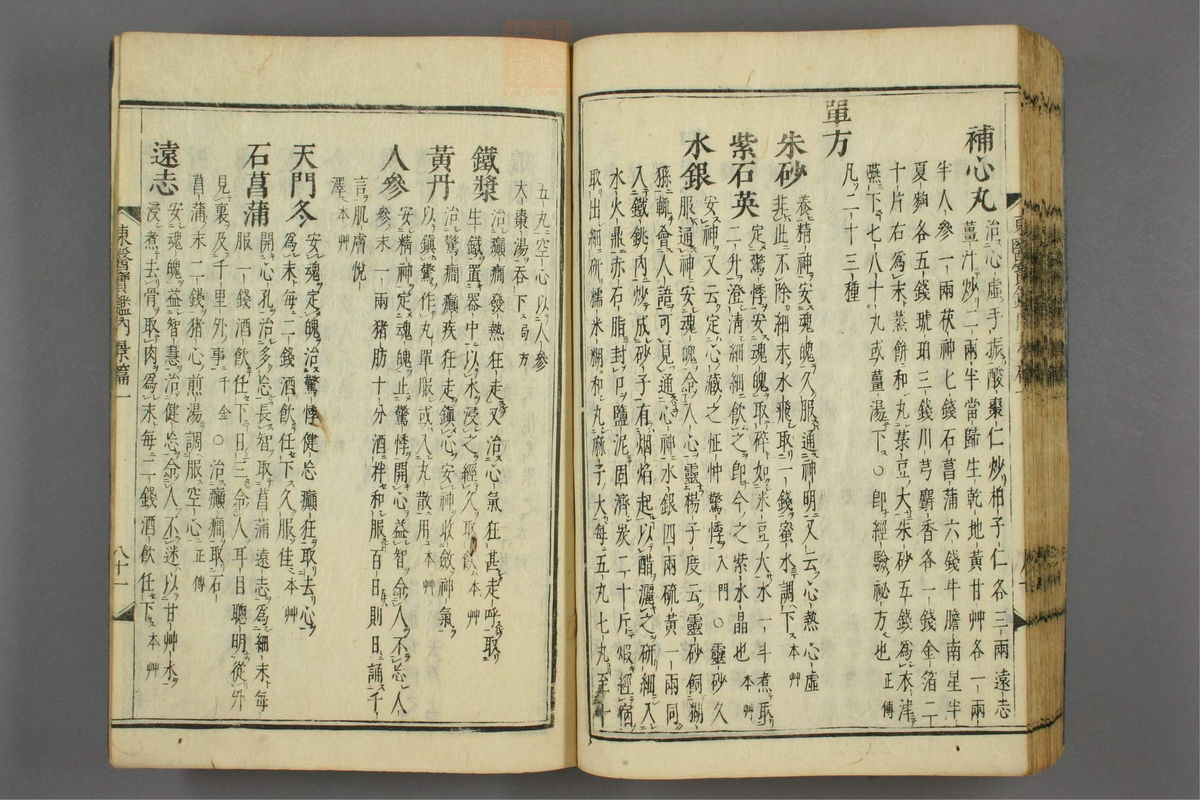 補心丸 治心虛手振酸棗仁炒柏子仁各三兩遠志
薑汁炒二兩半當歸生乾地黃甘艸各一兩
半人參一兩茯神七錢石菖蒲六錢牛膽南星半
夏麯各五錢琥珀三錢川芎麝香各一錢金箔二
十片右爲末蒸餅和丸菉豆大朱砂五錢爲衣津
嚥下七八十丸或薑湯下○卽經驗祕方也正傳
單方 凡二十三種
朱砂 養精神安魂魄久服通神明又云心熱心虛
非此不除細末水飛取一錢蜜水調下本艸
紫石英 定驚悸安魂魄取碎如米豆大水一斗煮取
二升澄淸細細飮之卽今之紫水晶也本艸
水銀 安神又云定心藏之怔忡驚悸入門○靈砂久
服通神安魂魄令人心靈楊子度云靈砂飼猢
猻輒會人語可見通心神水銀四兩硫黃一兩同
入鐵銚內炒成砂子有烟焰起以醋灑之硏細入
水火鼎赤石脂封口鹽泥固濟炭二十斤煆經宿
取出細硏糯米糊和丸麻子大每五丸七丸至十
五丸空心以人參
大棗湯呑下局方
鐵漿 治癲癎發熱狂走又治心氣狂甚走呼取
生鐵置器中以水浸之經久取飮本艸
黃丹 治驚癎癲疾狂走鎭心安神收斂神氣
以鎭驚作丸單服或入丸散用本艸
人參 安精神定魂魄止驚悸開心益智令人不忘人
參末一兩猪肪十分酒拌和服百日則日誦千
言肌膚悅
澤本艸
天門冬 安魂定魄治驚悸健忘癲狂取去心
爲末每二錢酒飮任下久服佳本艸
石菖蒲 開心孔治多忘長智取菖蒲遠志爲細末每
服一錢酒飮任下日三令人耳目聰明從外
見裏及千里外事千金○治癲癎取石
菖蒲末二錢猪心煎湯調服空心正傳
遠志 安魂魄益智慧治健忘令人不迷以甘艸水
浸煮去骨取肉爲末每二錢酒飮任下本艸
東醫寶鑑內景篇一
八十一